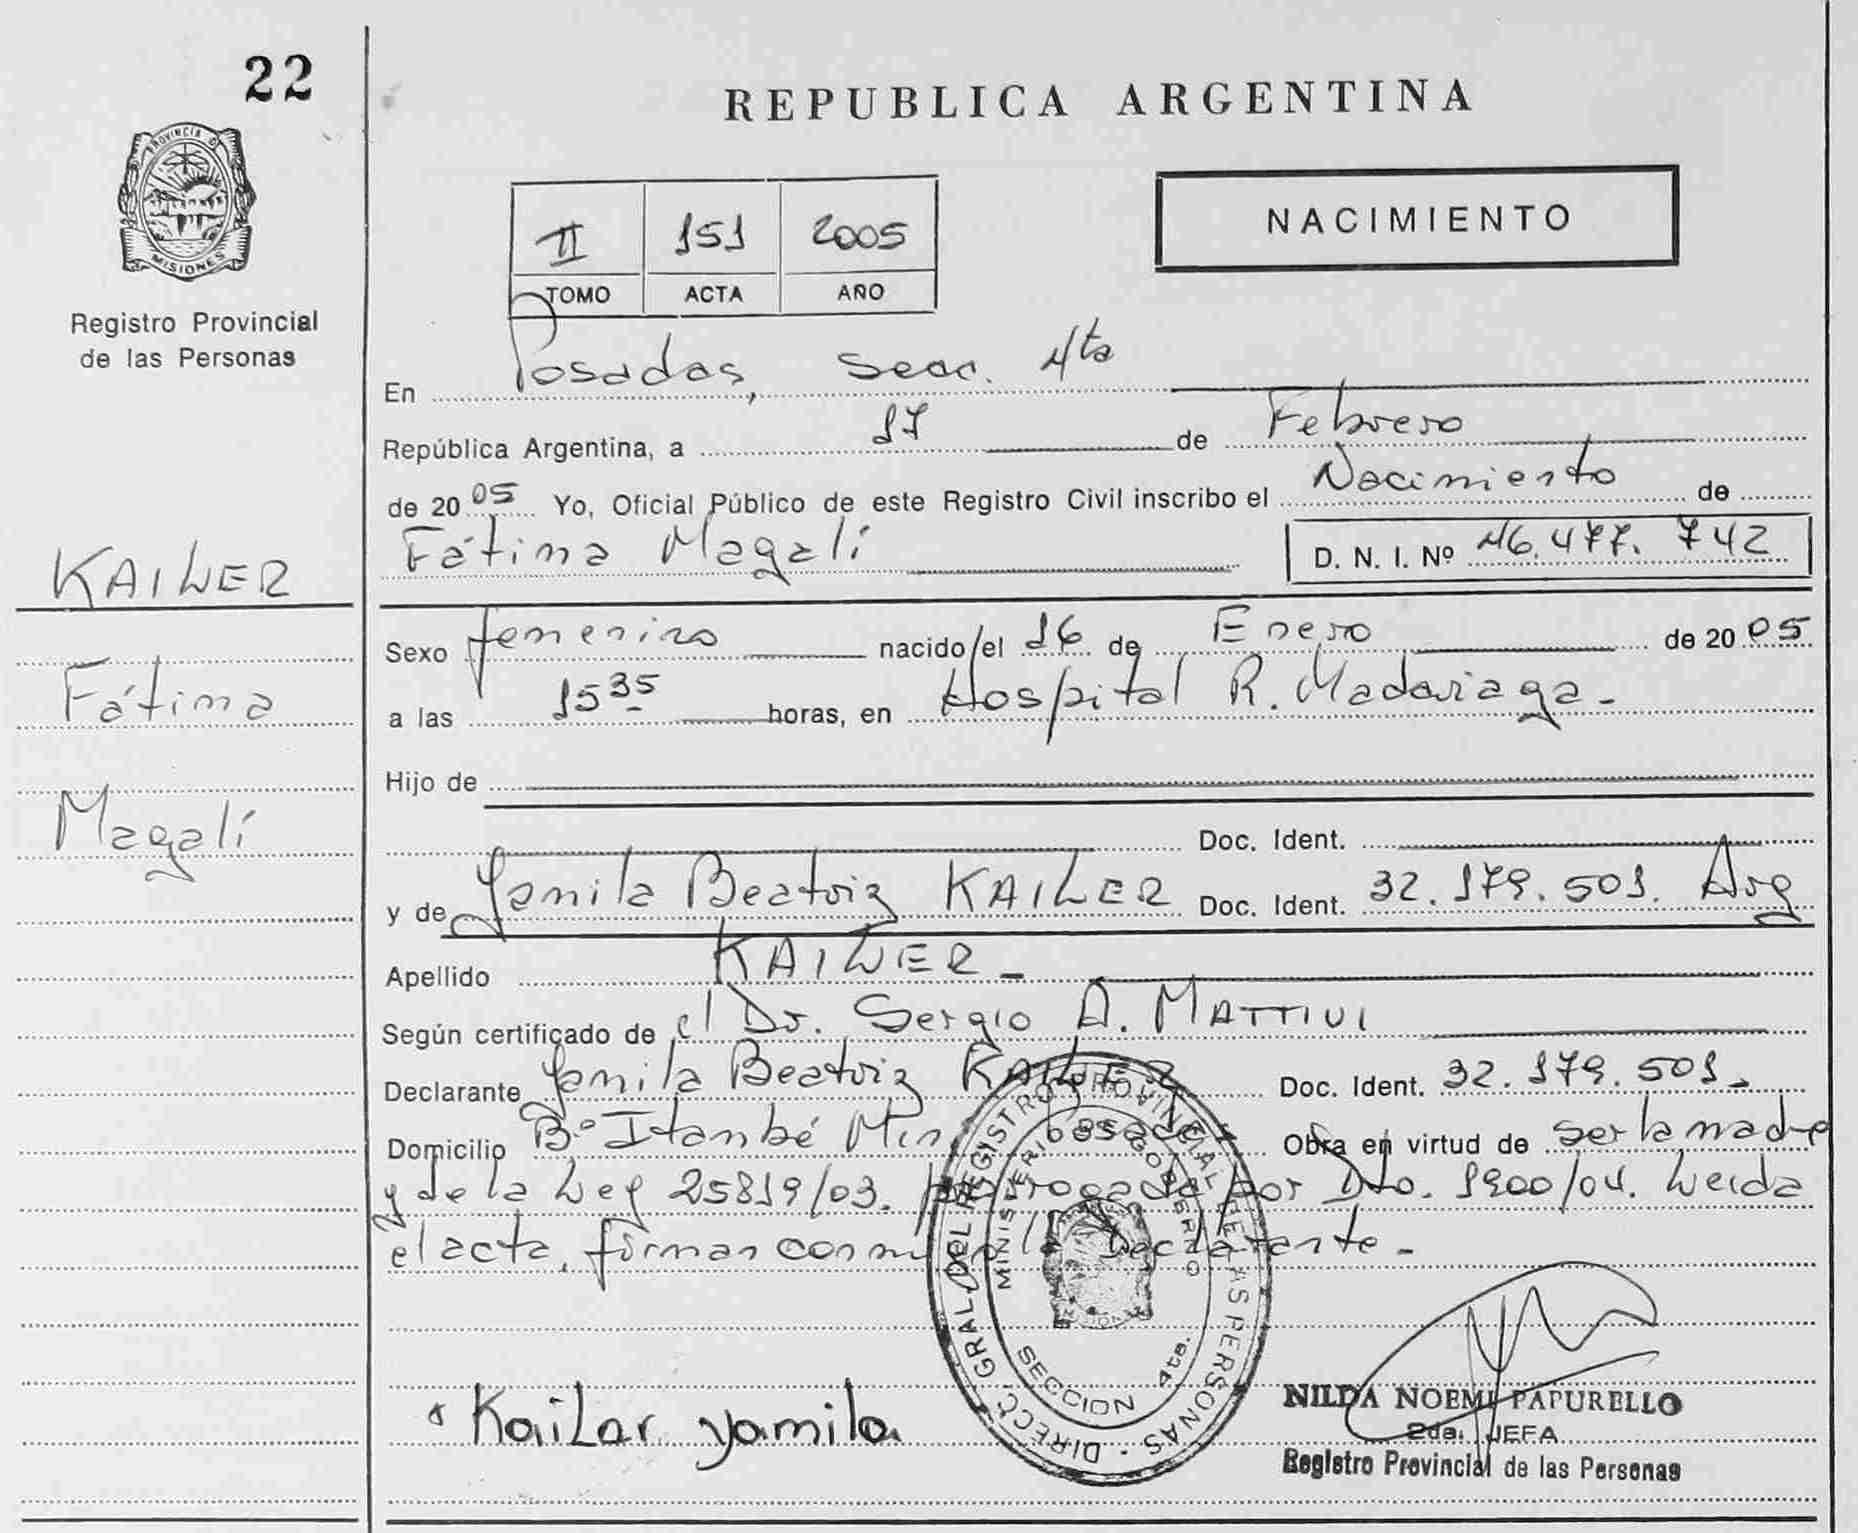 22
PROVINCIA D
MISIONES
Registro Provincial
de las Personas
KAILER
Fátima
Magalí
REPUBLICA ARGENTINA
II 151 2005
TOMO ACTA AÑO
NACIMIENTO
En Posadas, Secc. 4ta
República Argentina, a 17 de Febrero
de 2005 Yo, Oficial Público de este Registro Civil inscribo el Nacimiento de
Fátima Magalí D. N. I. Nº 46.477.742
Sexo femenino nacido/el 16 de Enero de 2005
a las 15 35 horas, en Hospital R. Madariaga.
Hijo de
Doc. Ident.
y de Yamila Beatriz KAILER Doc. Ident. 32.179.501. Arg
Apellido KAILER
Según certificado de el Dr. Sergio A. MATTIVI
Declarante Yamila Beatriz KAILER Doc. Ident. 32.179.501.
Domicilio Bº Itambé Miní Posadas Obra en virtud de ser la madre
y de la Ley 25819/03. Prorrogada por Dto. 1900/04. Leida
el acta, firman conmigo la Declarante.
DIRECC. GRAL. DEL REGISTRO PROVINCIAL DE LAS PERSONAS
MINISTERIO DE GOBIERNO
SECCION 4ta.
Kailar yamila
NILDA NOEMI PAPURELLO
2da. JEFA
Registro Provincial de las Personas